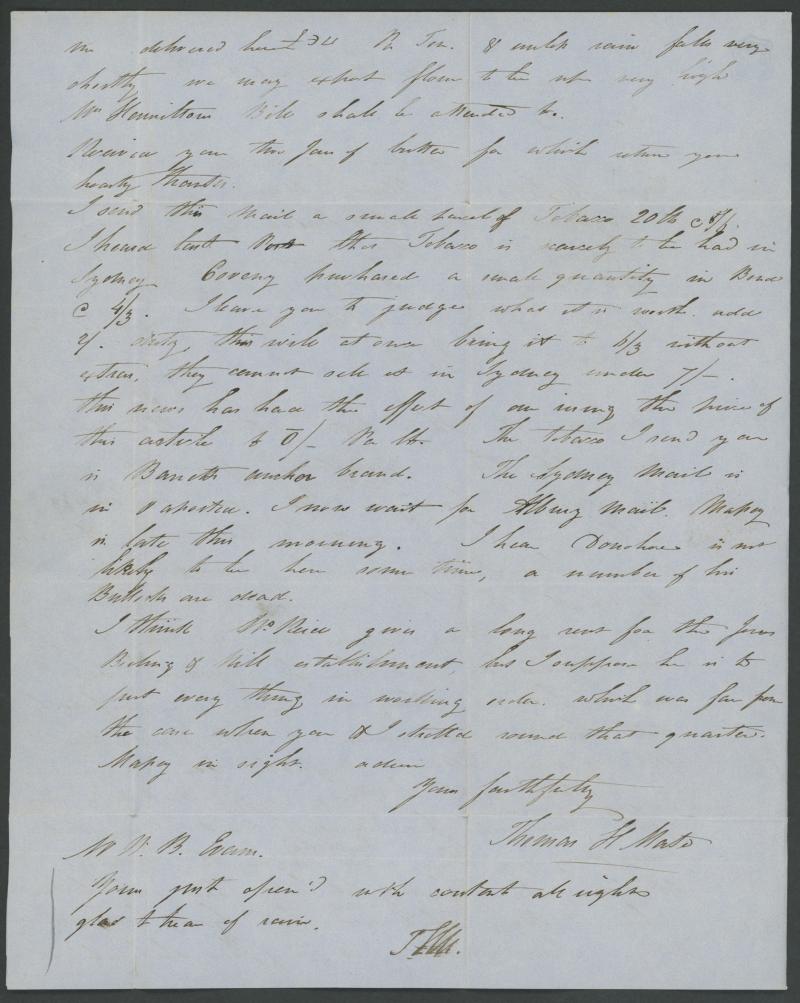 me delivered here £34 Per Ton. & unless rain falls very
shortly we may expect flour to be up very high
Mrs Hamiltons Bill shall be attended to.
Received your Jar of butter for which return you
hearty thanks.
I send this Mail a small parcel of Tobacco 20 lb
I heard last Post that Tobacco is scarcely to be had in
Sydney. purchased a small quantity in Bond
@ 4/3. I leave you to judge what it is worth. add
2/. duty, this will at once bring it to 6/3 without
extras, they cannot sell it in Sydney under 7/-.
this news has had the effect of our rising the price of
this article to /- Per lb. The tobacco I send you
is Barretts anchor brand. The Sydney Mail is
in & aported. I now wait for Albury Mail.
is late this morning. I hear Donohoe is not
likely to be here some time, a number of his
Bullocks are dead.
I think Mr Reid gives a long rent for the
& Mill establishment, but I suppose he is to
put every thing in working order. which was far from
the case when you & I strolled round that quarter.
in sight. adieu
Yours faithfully
Thomas H Mate
Mr W. B. Evans.
Yours just open'd with content all right
glad to hear of rain.
THM.